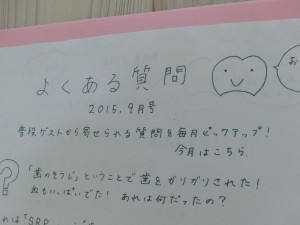 よくある質問
お
2015.9月号
普段ゲストから寄せられる質問を毎月ピックアップ!
今月はこちら
?
「歯のそうじ」ということで歯をガリガリされた!
血もいっぱいでた! あれは何だったの?
れは「SRP